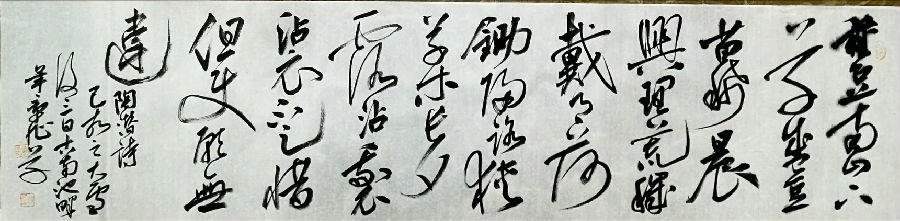 種豆南山下
草盛豆
苗稀晨
興理荒穢
戴月荷
鋤歸路狹
草木長夕
露沾我衣
沾衣不足惜
但使願無
違
陶潛詩
之大雪
後三日